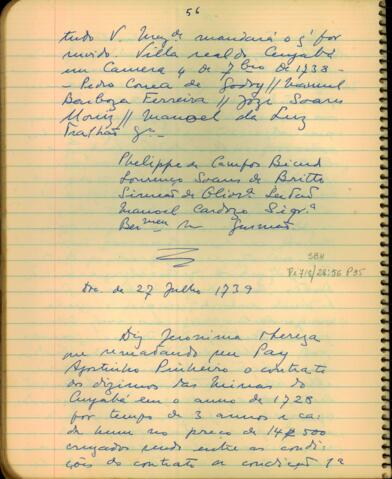 56
tudo V. Mag.de mandará o q' for
servido. Villa real do Cuyabá
em Camera 4 de 7bro de 1738 -
- Pedro Correa de Godoy // Manuel
Barboza Ferreira // Joze Soares
Moniz // Manoel da Luz
Phelippe de Campos Bicud
Lourenço Soares de Britto
Simeão de Olivr.a Leitão
Manoel Cardozo Siqr.a
Gusmão
SBH
Pi 718/28:56 P35
Do. de 27 Julho 1739
Diz Jeronima Thereza
que rematando seu Pay
Agostinho Pinheiro o contrato
os dizimos das minas do
Cuyabá em o anno de 1728
por tempo de 3 annos e ca-
da hum no preço de 14$500
cruzados sendo entre as condi-
ções do contrato a condicção 1ª